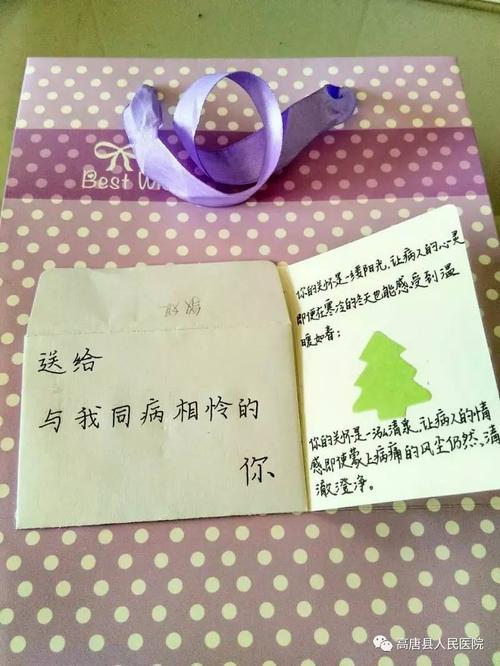 Best W
送给
与我同病相怜的
你
你的关怀是一缕阳光,让病人的心灵
即使在寒冷的冬天也能感受到温
暖如春;
你的关怀是一泓清泉,让病人的情
感即使蒙上病痛的风尘仍然,清
澈澄净。
高唐县人民医院